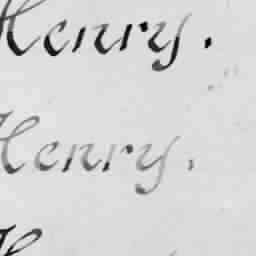 Henry.
Henry.